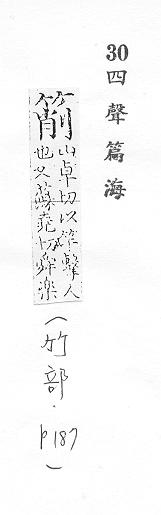 30 四聲篇海
箾
山卓切以竿擊人
也又蘇堯切舜楽
(竹部.P187)